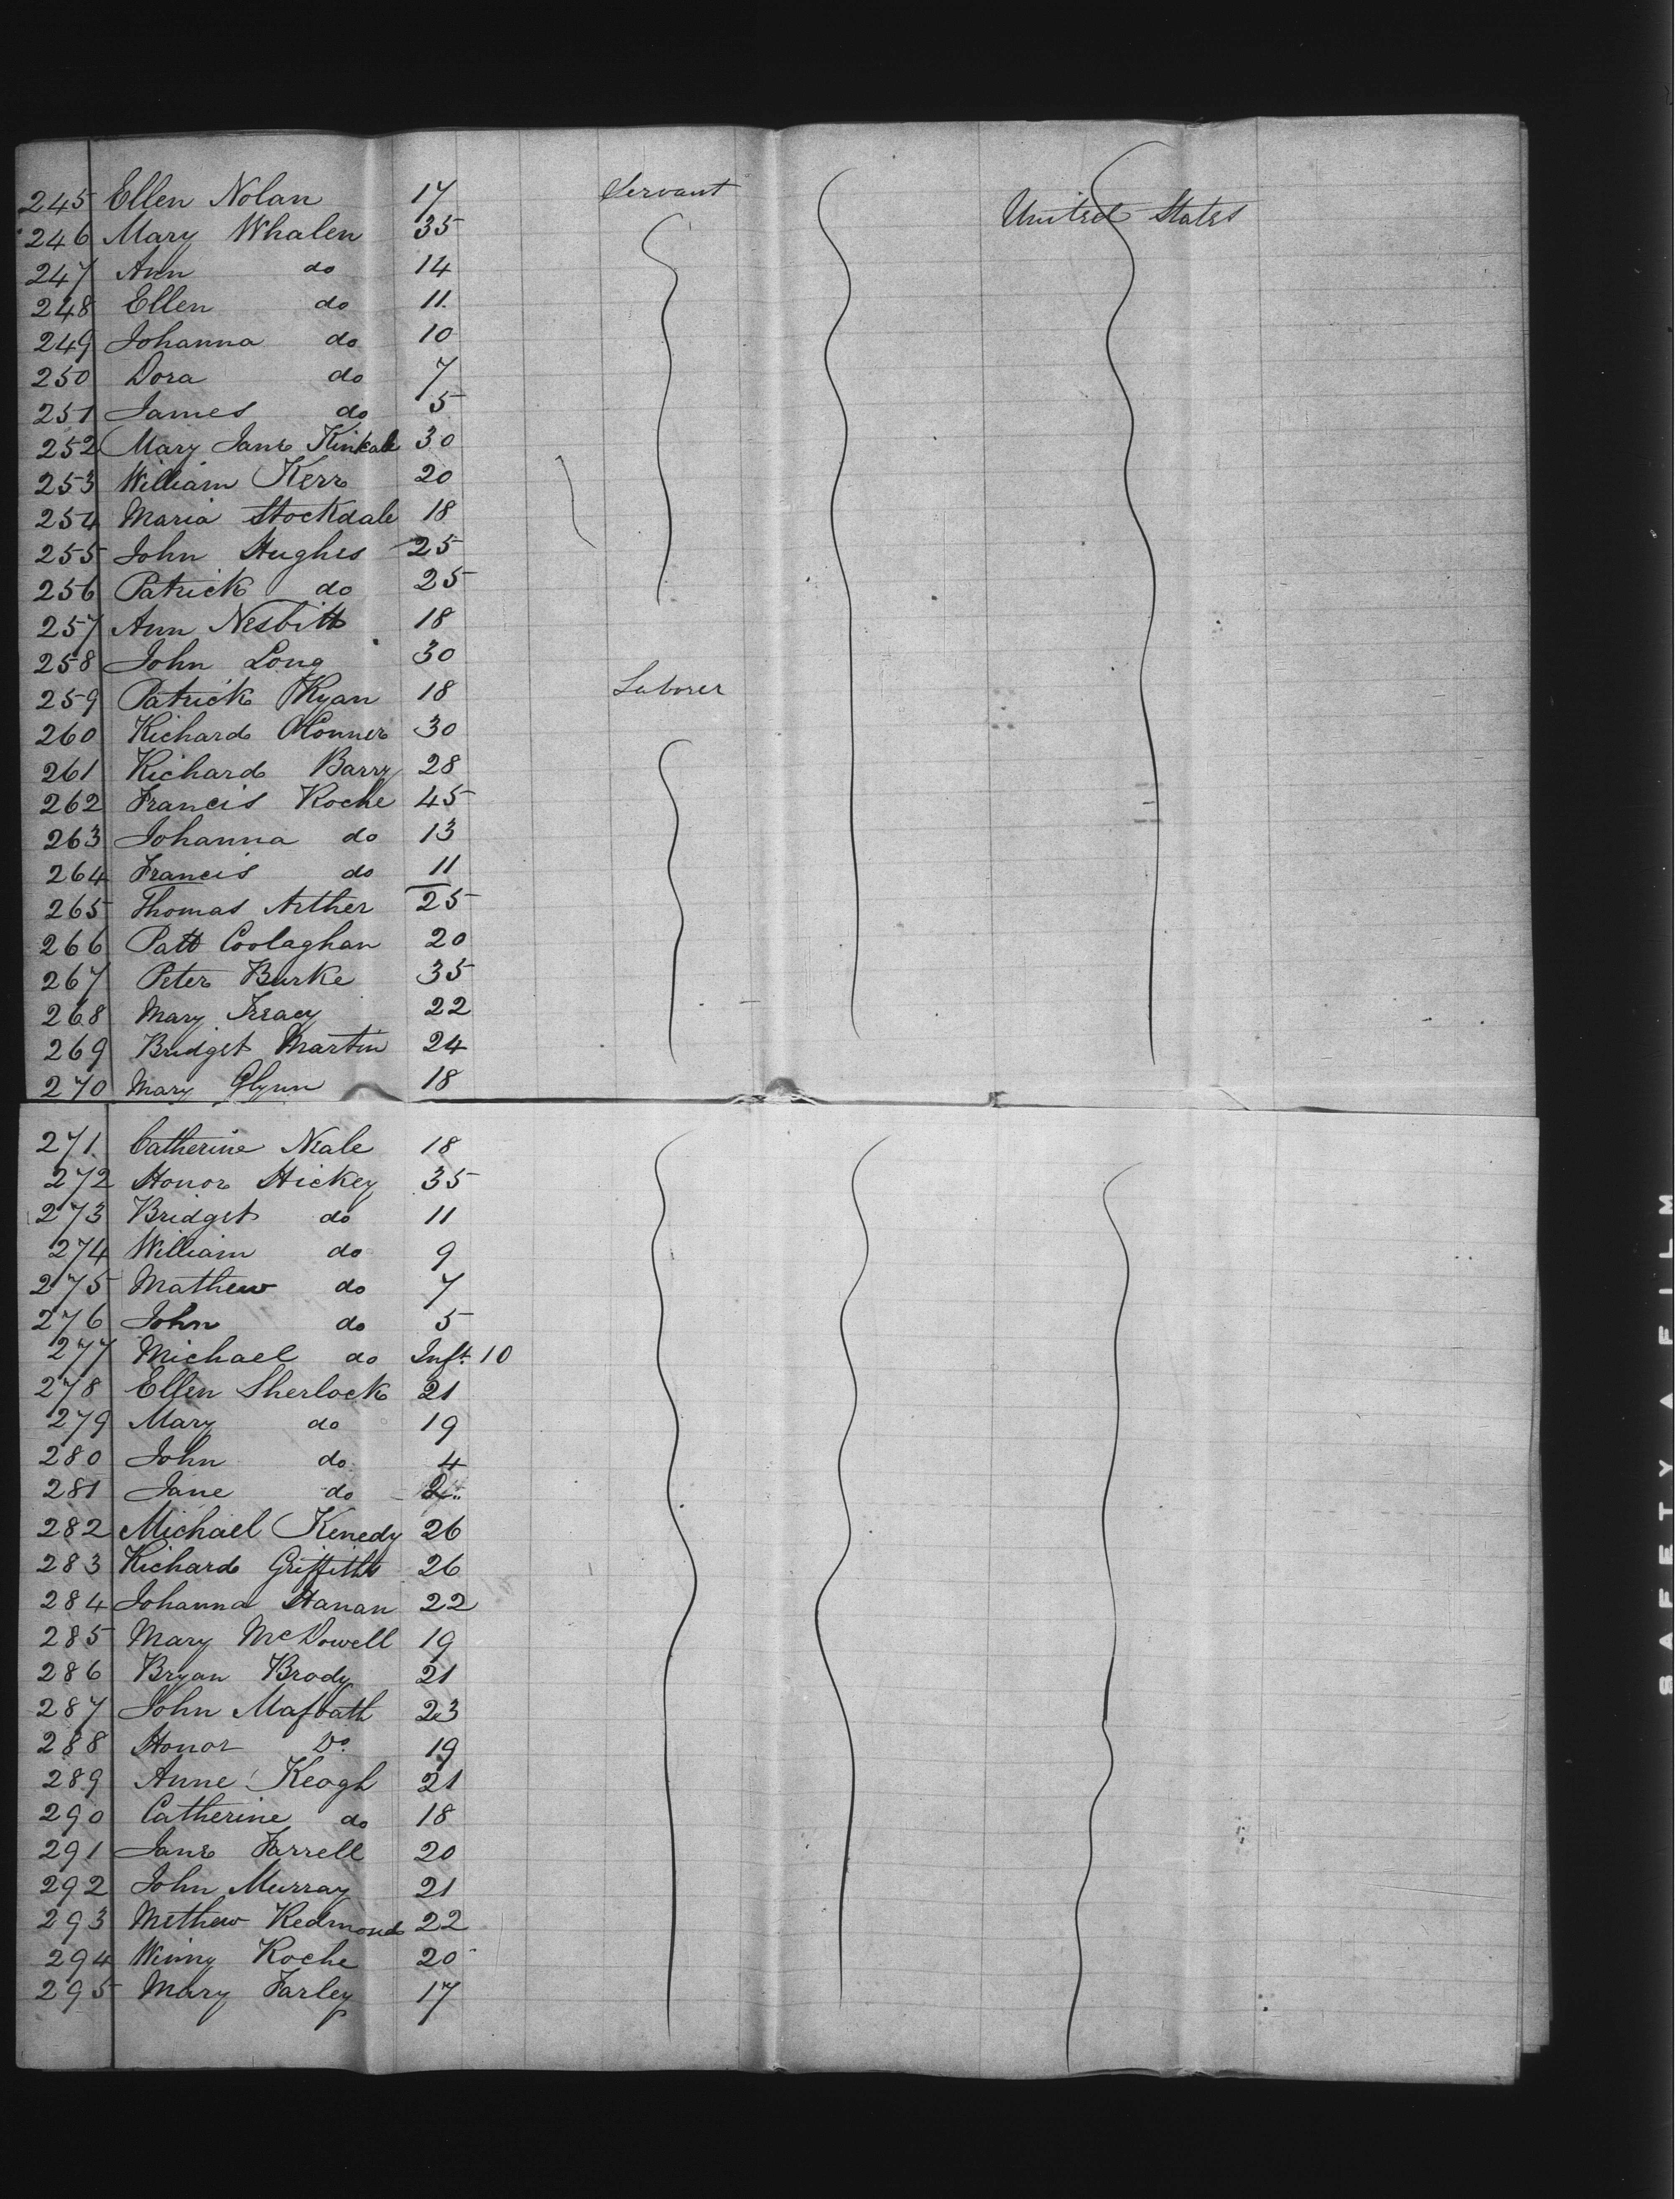 245 Ellen Nolan 17 Servant
246 Mary Whalen 35 United States
247 Ann do 14
248 Ellen do 11
249 Johanna do 10
250 Dora do 7
251 James do 5
252 Mary Jane 30
253 William Kerr 20
254 Maria Stockdale 18
255 John Hughes 25
256 Patrick do 25
257 Ann Nesbitt 18
258 John Long 30
259 Patrick Ryan 18 Laborer
260 Richard OConner 30
261 Richard Barry 28
262 Francis Roche 45
263 Johanna do 13
264 Francis do 11
265 Thomas Arther 25
266 Patt Coolaghan 20
267 Peter Burke 35
268 Mary Treacy 22
269 Bridget Martin 24
270 Mary Glynn 18
271 Catherine Neale 18
272 Honor Hickey 35
273 Bridget do 11
274 William do 9
275 Mathew do 7
276 John do 5
277 Michael do Inft. 10
278 Ellen Sherlock 21
279 Mary do 19
280 John do 4
281 Jane do 2
282 Michael Kenedy 26
283 Richard Griffiths 26
284 Johanna Hanan 22
285 Mary McDowell 19
286 Bryan Brody 21
287 John 23
288 Honor Do 19
289 Anne Keogh 21
290 Catherine do 18
291 Jane Farrell 20
292 John Murray 21
293 Methew Redmond 22
294 Winny Roche 20
295 Mary Farley 17
SAFETY A FILM